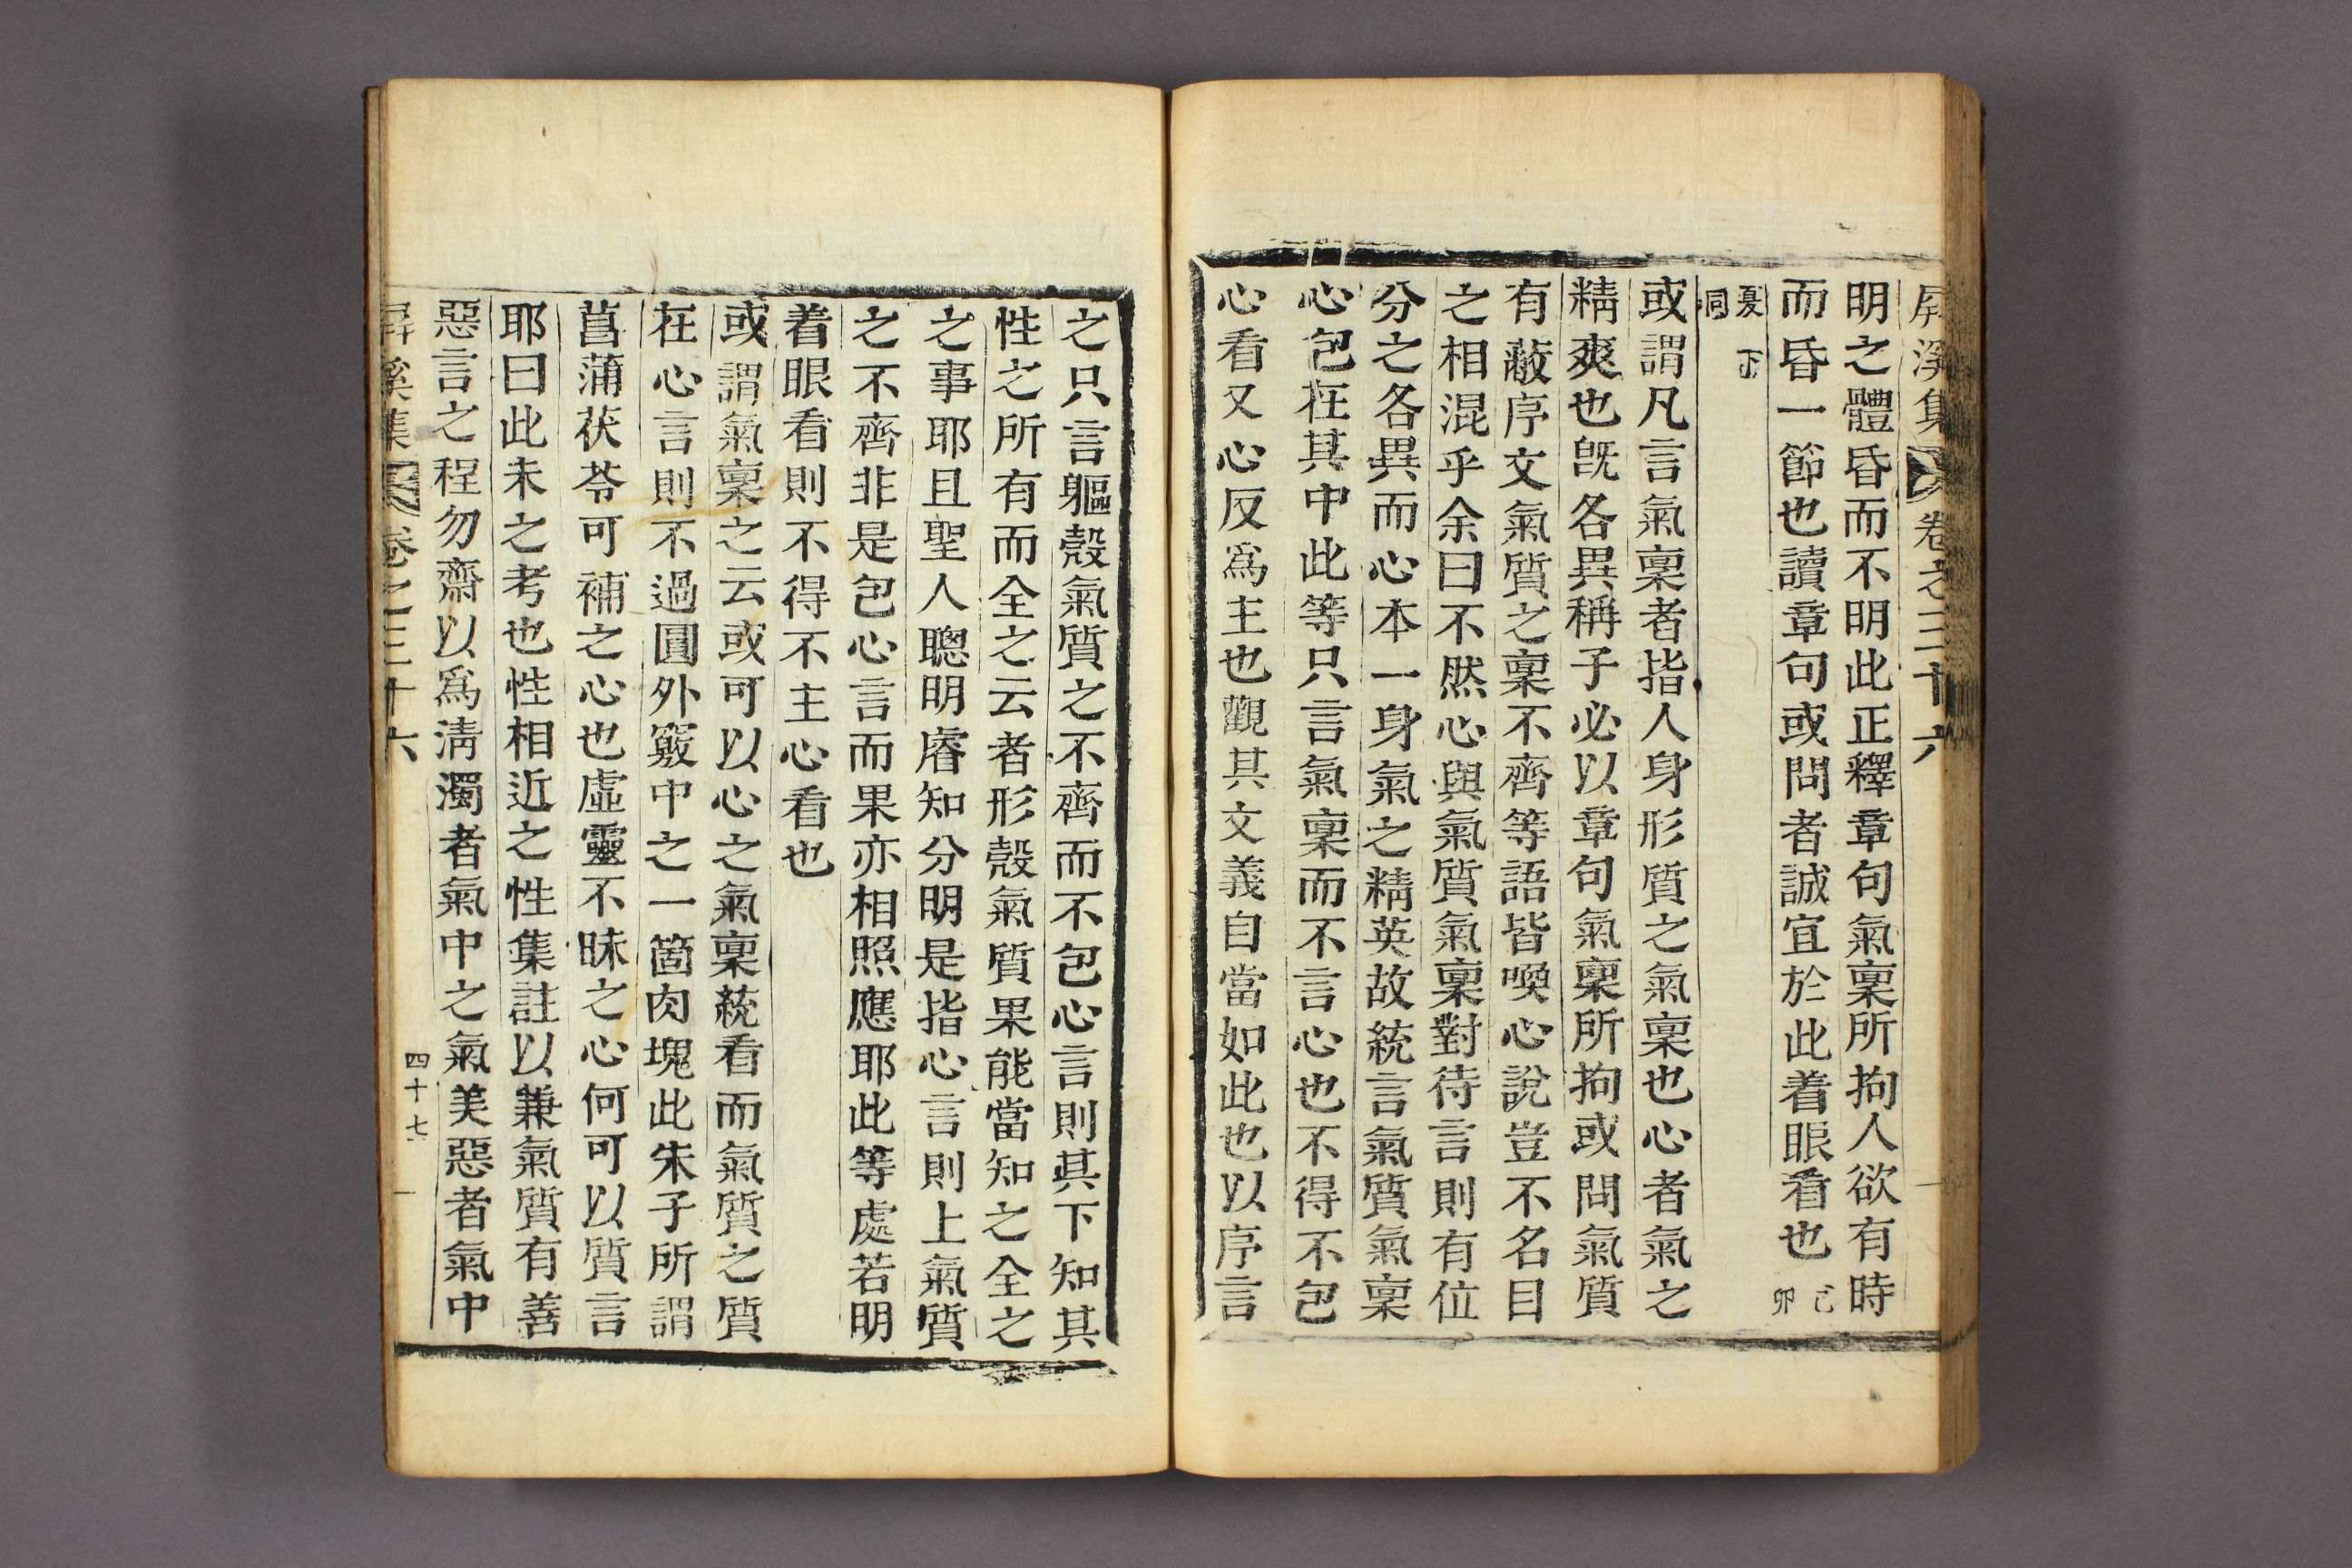 屛溪集 卷之三十六
明之體昏而不明此正釋章句氣稟所拘人欲有時
而昏一節也讀章句或問者誠宜於此着眼看也己卯
夏下同
或謂凡言氣稟者皆人身形質之氣稟也心者氣之
精爽也旣各異稱子必以章句氣稟所拘或問氣質
有蔽序文氣質之稟不齊等語皆喚心說豈不名目
之相混乎余曰不然心與氣質氣稟對待言則有位
分之各異而心本一身氣之精英故統言氣質氣稟
心包在其中此等只言氣稟而不言心也不得不包
心看又心反爲主也觀其文義自當如此也以序言
之只言軀殼氣質之不齊而不包心言則其下知其
性之所有而全之云者形殼氣質果能當知之全之
之事耶且聖人聰明睿知分明是指心言則上氣質
之不齊非是包心言而果亦相照應耶此等處若明
着眼看則不得不主心看也
或謂氣稟之云或可以心之氣稟統看而氣質之質
在心言則不過圓外竅中之一箇肉塊此朱子所謂
菖蒲茯苓可補之心也虛靈不昧之心何可以質言
耶曰此未之考也性相近之性集註以兼氣質有善
惡言之程勿齋以爲淸濁者氣中之氣美惡者氣中
屛溪集 卷之三十六 四十七